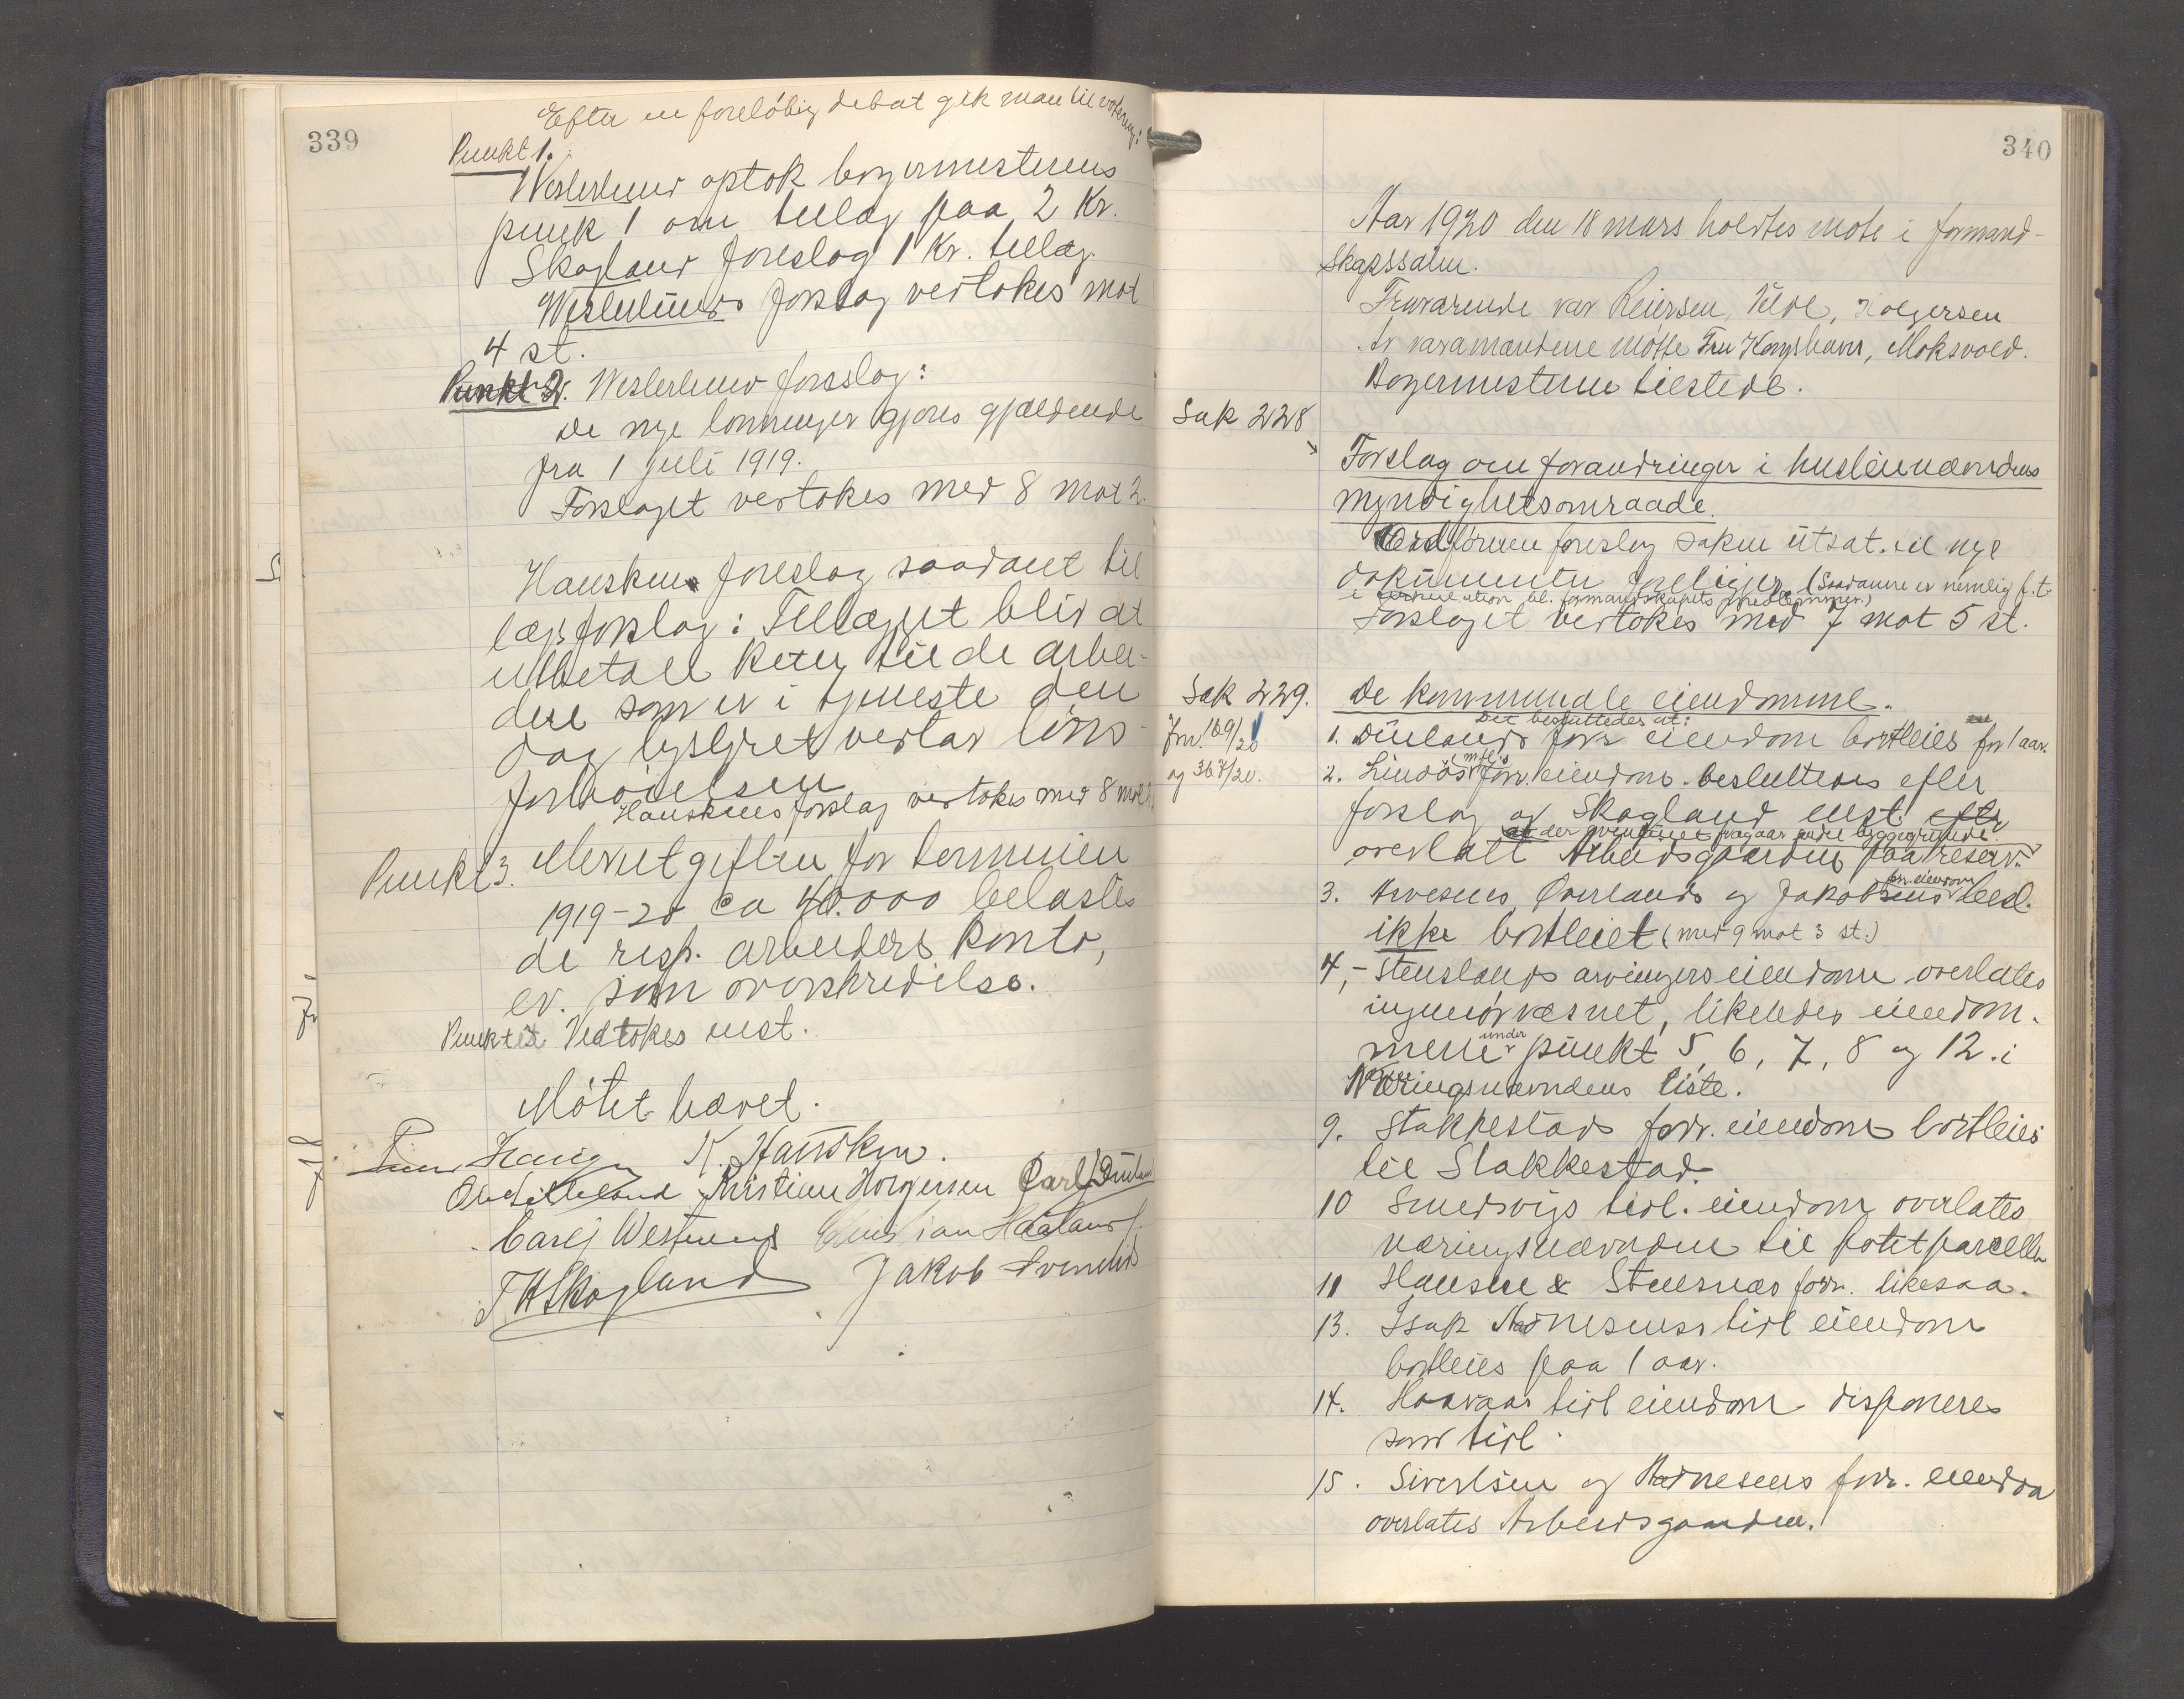 339
Efter en foreløbig debat gik man til votering:
Punkt 1.
Westerlund optok borgermesterens
punk 1 om tillæg paa 2 Kr.
Skogland foreslog 1 Kr. tillæg.
Westerlunds forslag vedtokes mot
4 st.
Punkt 2. Westerlund forslog:
De nye lønninger gjøres gjældende
fra 1 juli 1919.
Forslaget vedtokes med 8 mot 2.
Hausken foreslog saadant til
lægsforslag: Tillægget blir at
utbetale kun til de arbei-
dere som er i tjeneste den
dag bystyret vedtar løns-
forhøielsen
Hauskens forslag vedtokes med 8 mot
Punkt 3. Merutgiften for terminen
1919-20 ca 40.000 belastes
de resp. arbeiders konto,
ev. som overskridelse.
Punkt Vedtokes enst.
Møtet hævet.
K. Hausken.
Kristian Horgersen Carl
Carl J Westerlund Christian Haaland
T H Skogland Jakob Svendsen
340
Aar 1920 den 18 mars holdtes møte i formand-
skapssalen.
Fraværende var Reiersen, Vilde, Holgersen
Av varamændene møtte Fru Kongshavn, Moksvold.
Borgermesteren tilstede.
Sak 228
Forslag om forandringer i husleienævndens
myndighetsomraade.
Ordføreren foreslog saken utsat til nye
dokumenter foreligger (Saadanne er nemlig f.t.
i cirkulation bl. formandskapets medlemmer.)
Forslaget vedtokes med 7 mot 5 st.
Sak 229.
Jrn. 109/20
og 367/20.
De kommunale eiendomme.
Det besluttedes at:
1. Duelands forr eiendom bortleies for 1 aar.
2. Lindøs m fl's forr. eiendom besluttedes efter
forslag av Skogland enst. efter
at der eventuelt fragaar endel byggegrunde
overlatt Arbeidsgaarden paa reserv.
3. Arvesens, Øverlands og Jakobsens forr. eiendom besl.
ikke bortleiet (med 9 mot 3 st.)
4, - Stenslands arvingers eiendom overlates
ingeniørvæsnet, likeledes eiendom-
mene under punkt 5, 6, 7, 8 og 12 i
Næringsnævndens liste.
9. Stakkestads forr. eiendom bortleies
til Stakkestad.
10 Smedsvigs tidl. eiendom overlates
næringsnævnden til potetparceller
11 Hansene & Stuesnæs forr. likesaa.
13. Isak Aadnesens tidl eiendom
bortleies paa 1 aar.
14. Haavaas tidl eiendom disponeres
som tidl.
15. Sivertsen og Aadnesens forr. eiendom
overlates Arbeidsgaarden.